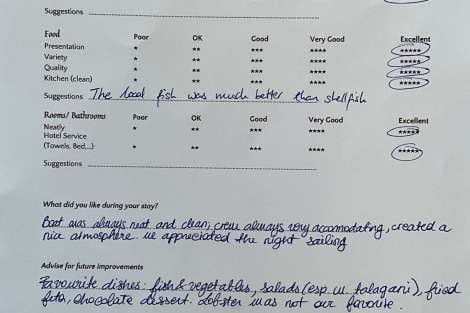 Suggestions
Food Poor OK Good Very Good Excellent
Presentation * ** *** **** *****
Variety * ** *** **** *****
Quality * ** *** **** *****
Kitchen (clean) * ** *** **** *****
Suggestions The local fish was much better than shellfish
Rooms/ Bathrooms Poor OK Good Very Good Excellent
Neatly * ** *** **** *****
Hotel Service
(Towels, Bed...) * ** *** **** *****
Suggestions
What did you like during your stay?
Boat was always neat and clean, crew always very accomodating, created a
nice atmosphere. we appreciated the night sailing
Advise for future improvements
Favourite dishes: fish & vegetables, salads (esp. w. talagani), fried
feta, chocolate dessert. Lobster was not our favorite.